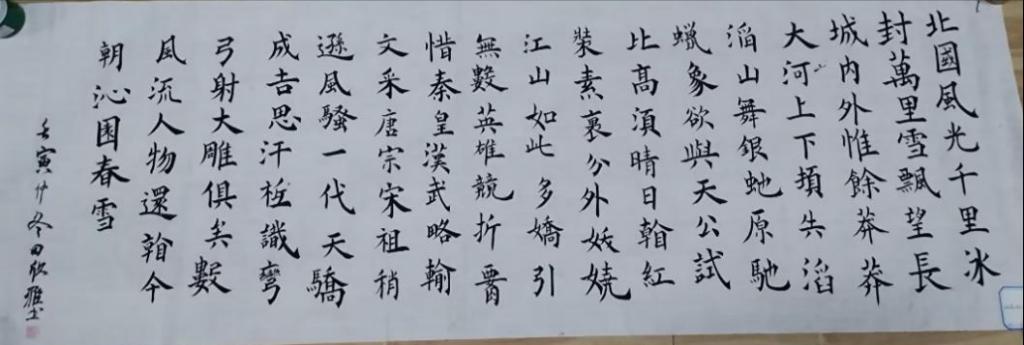 北國風光千里冰
封萬里雪飄望長
城内外惟餘莽莽
大河上下頓失滔
滔山舞銀虵原馳
蠟象欲與天公試
比高湏晴日翰紅
裝素裹分外妖嬈
江山如此多嬌引
無數英雄競折
惜秦皇漢武略輸
文采唐宗宋祖稍
遜風騷一代天驕
成吉思汗秖識彎
弓射大雕俱矣數
風流人物還翰今
朝沁園春雪
壬寅廿冬田